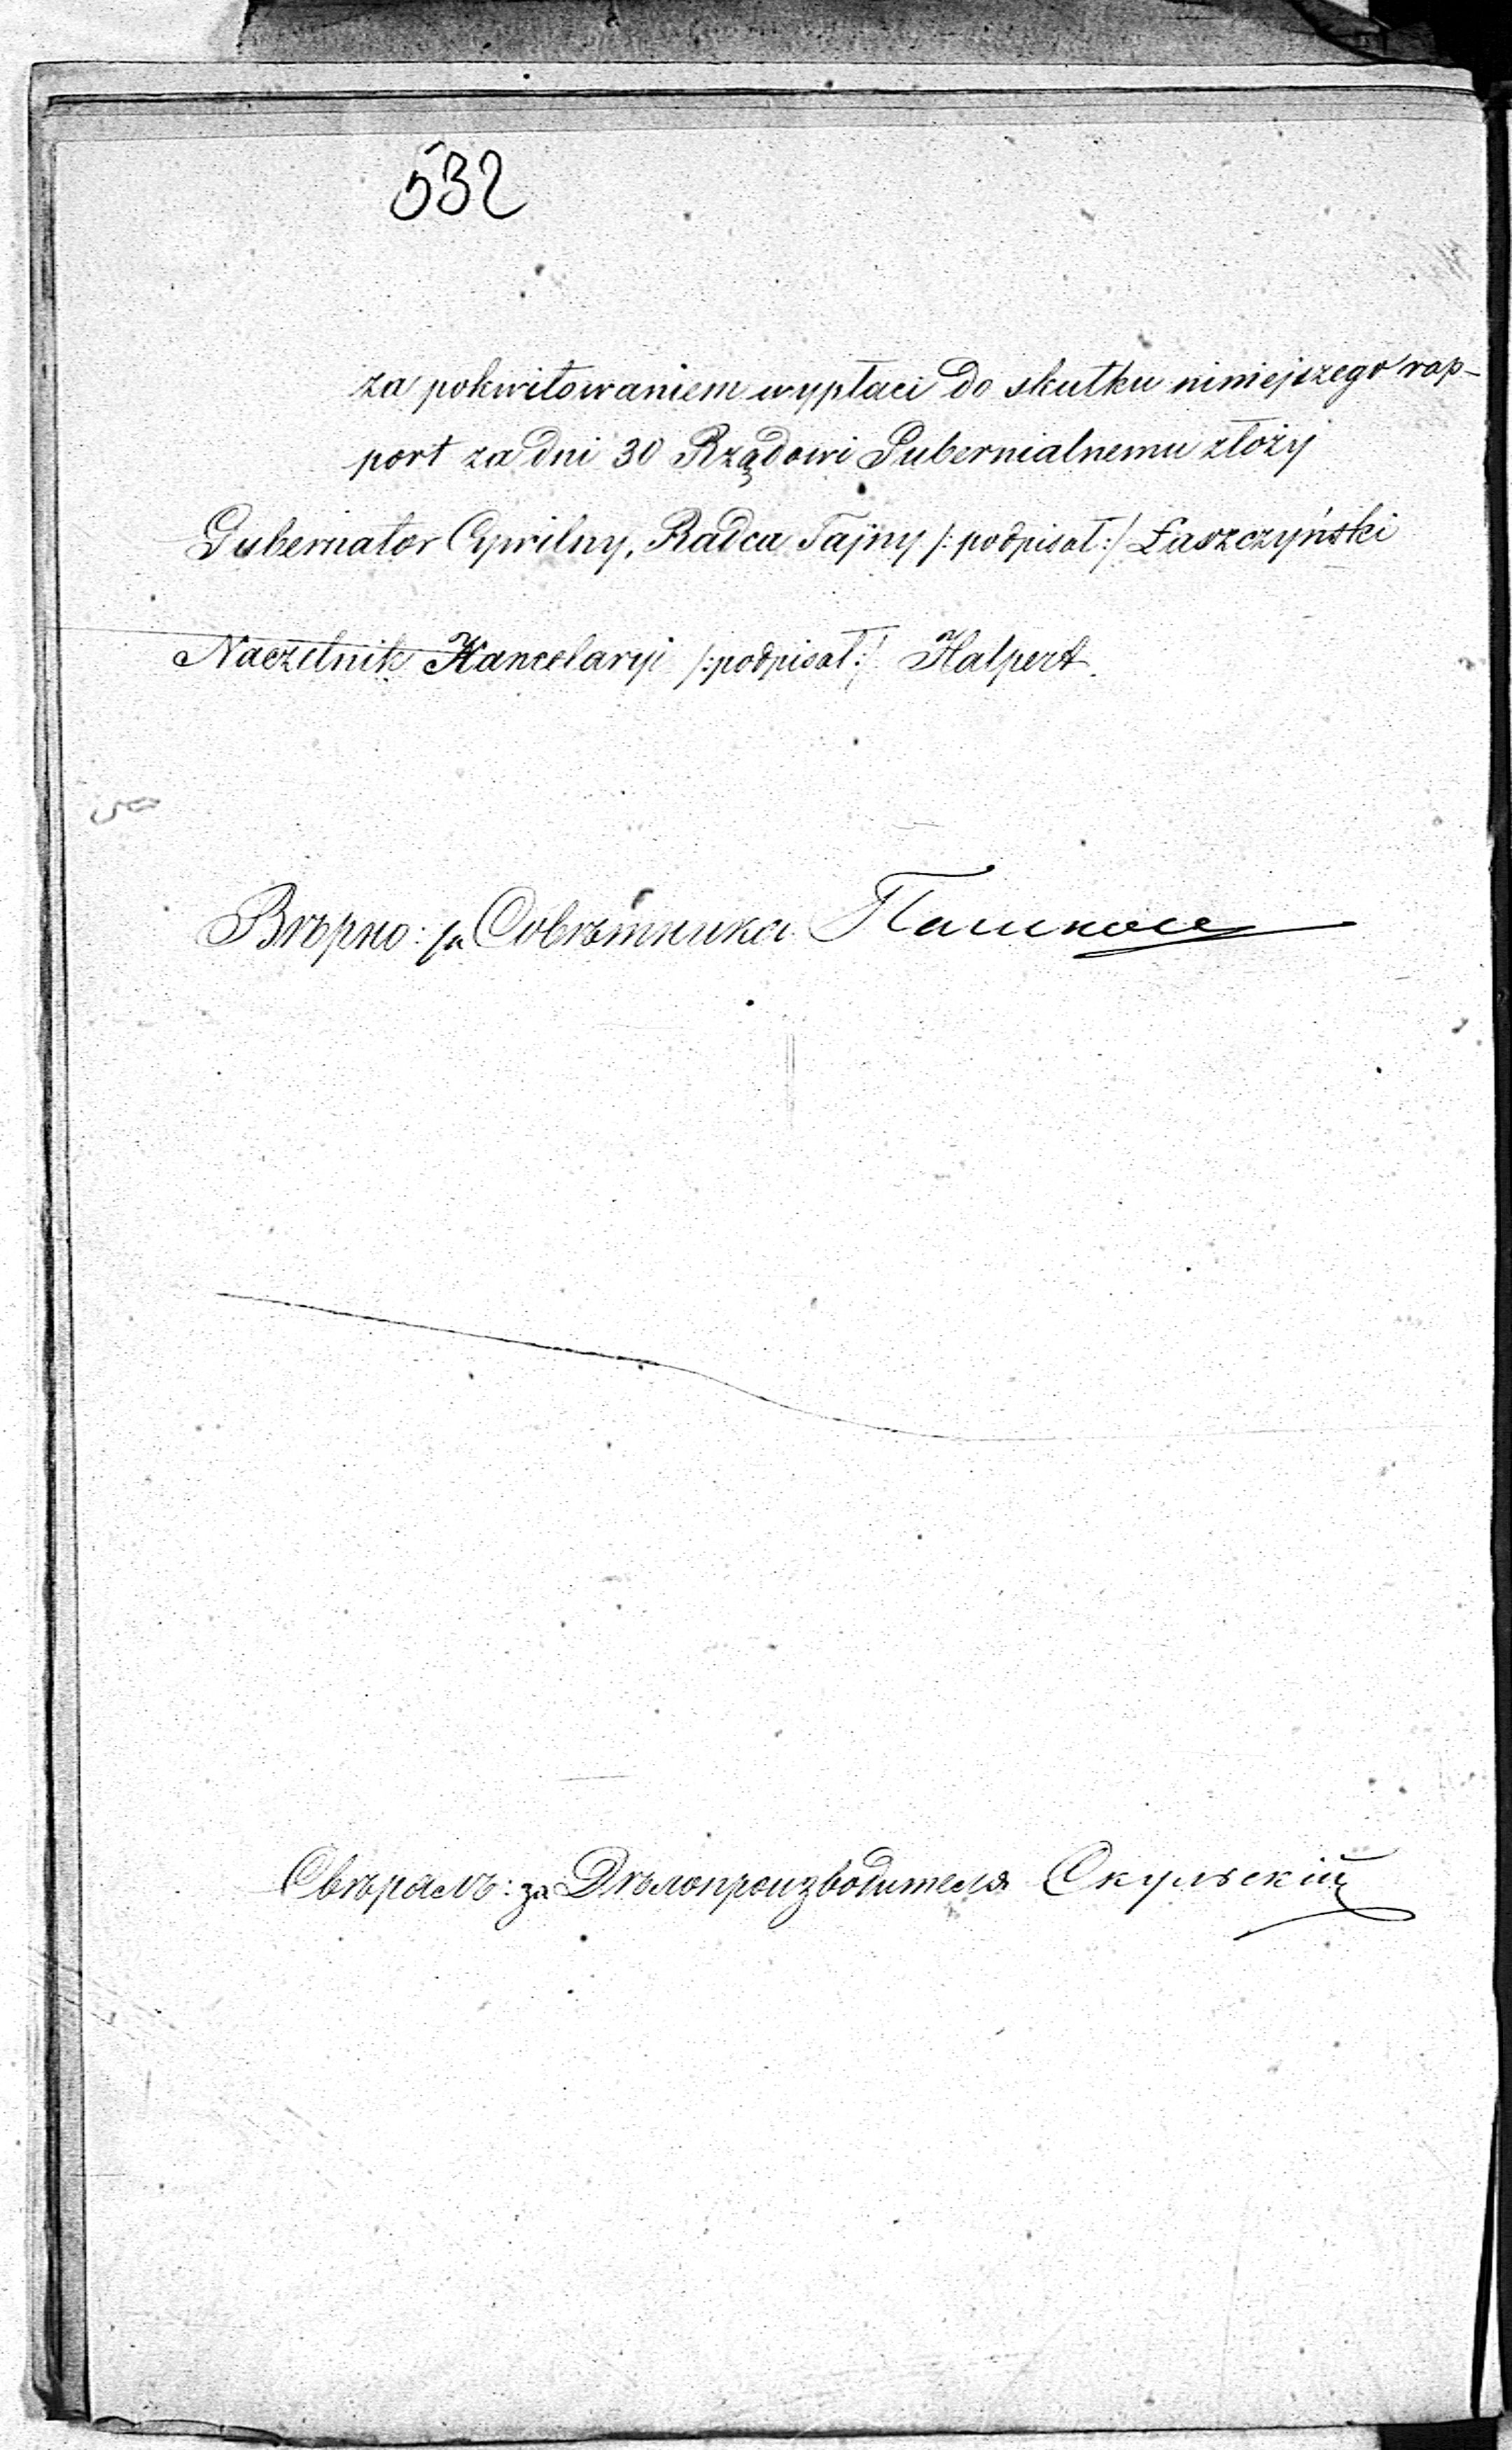 532
za pokwitowaniem wypłaci do skutku niniejszego rap-
port za dni 30 Rządowi Gubernialnemu złoży
Gubernator Cywilny, Radca Tajny /:podpisał:/ Łaszczyński
Naczelnik Kancelaryi /:podpisał:/ Halpert.
Вѣрно: за Совѣтника
Свѣрялъ: за Дѣлопроизводителя Скульскій